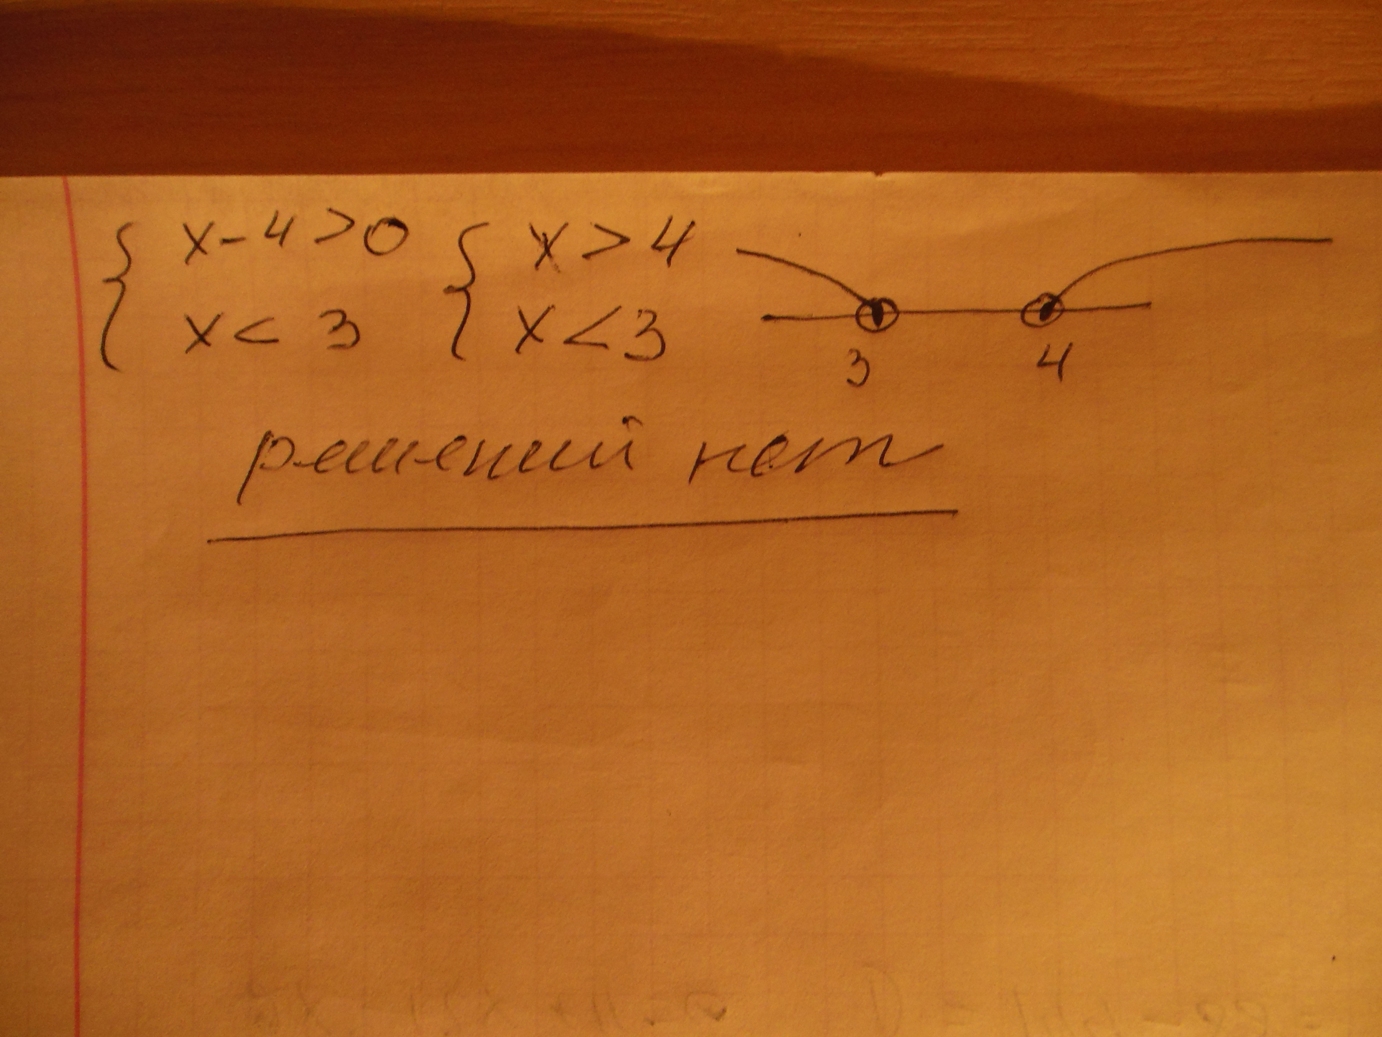 x-4>0 x>4
x<3 x<3
3 4
решений нет